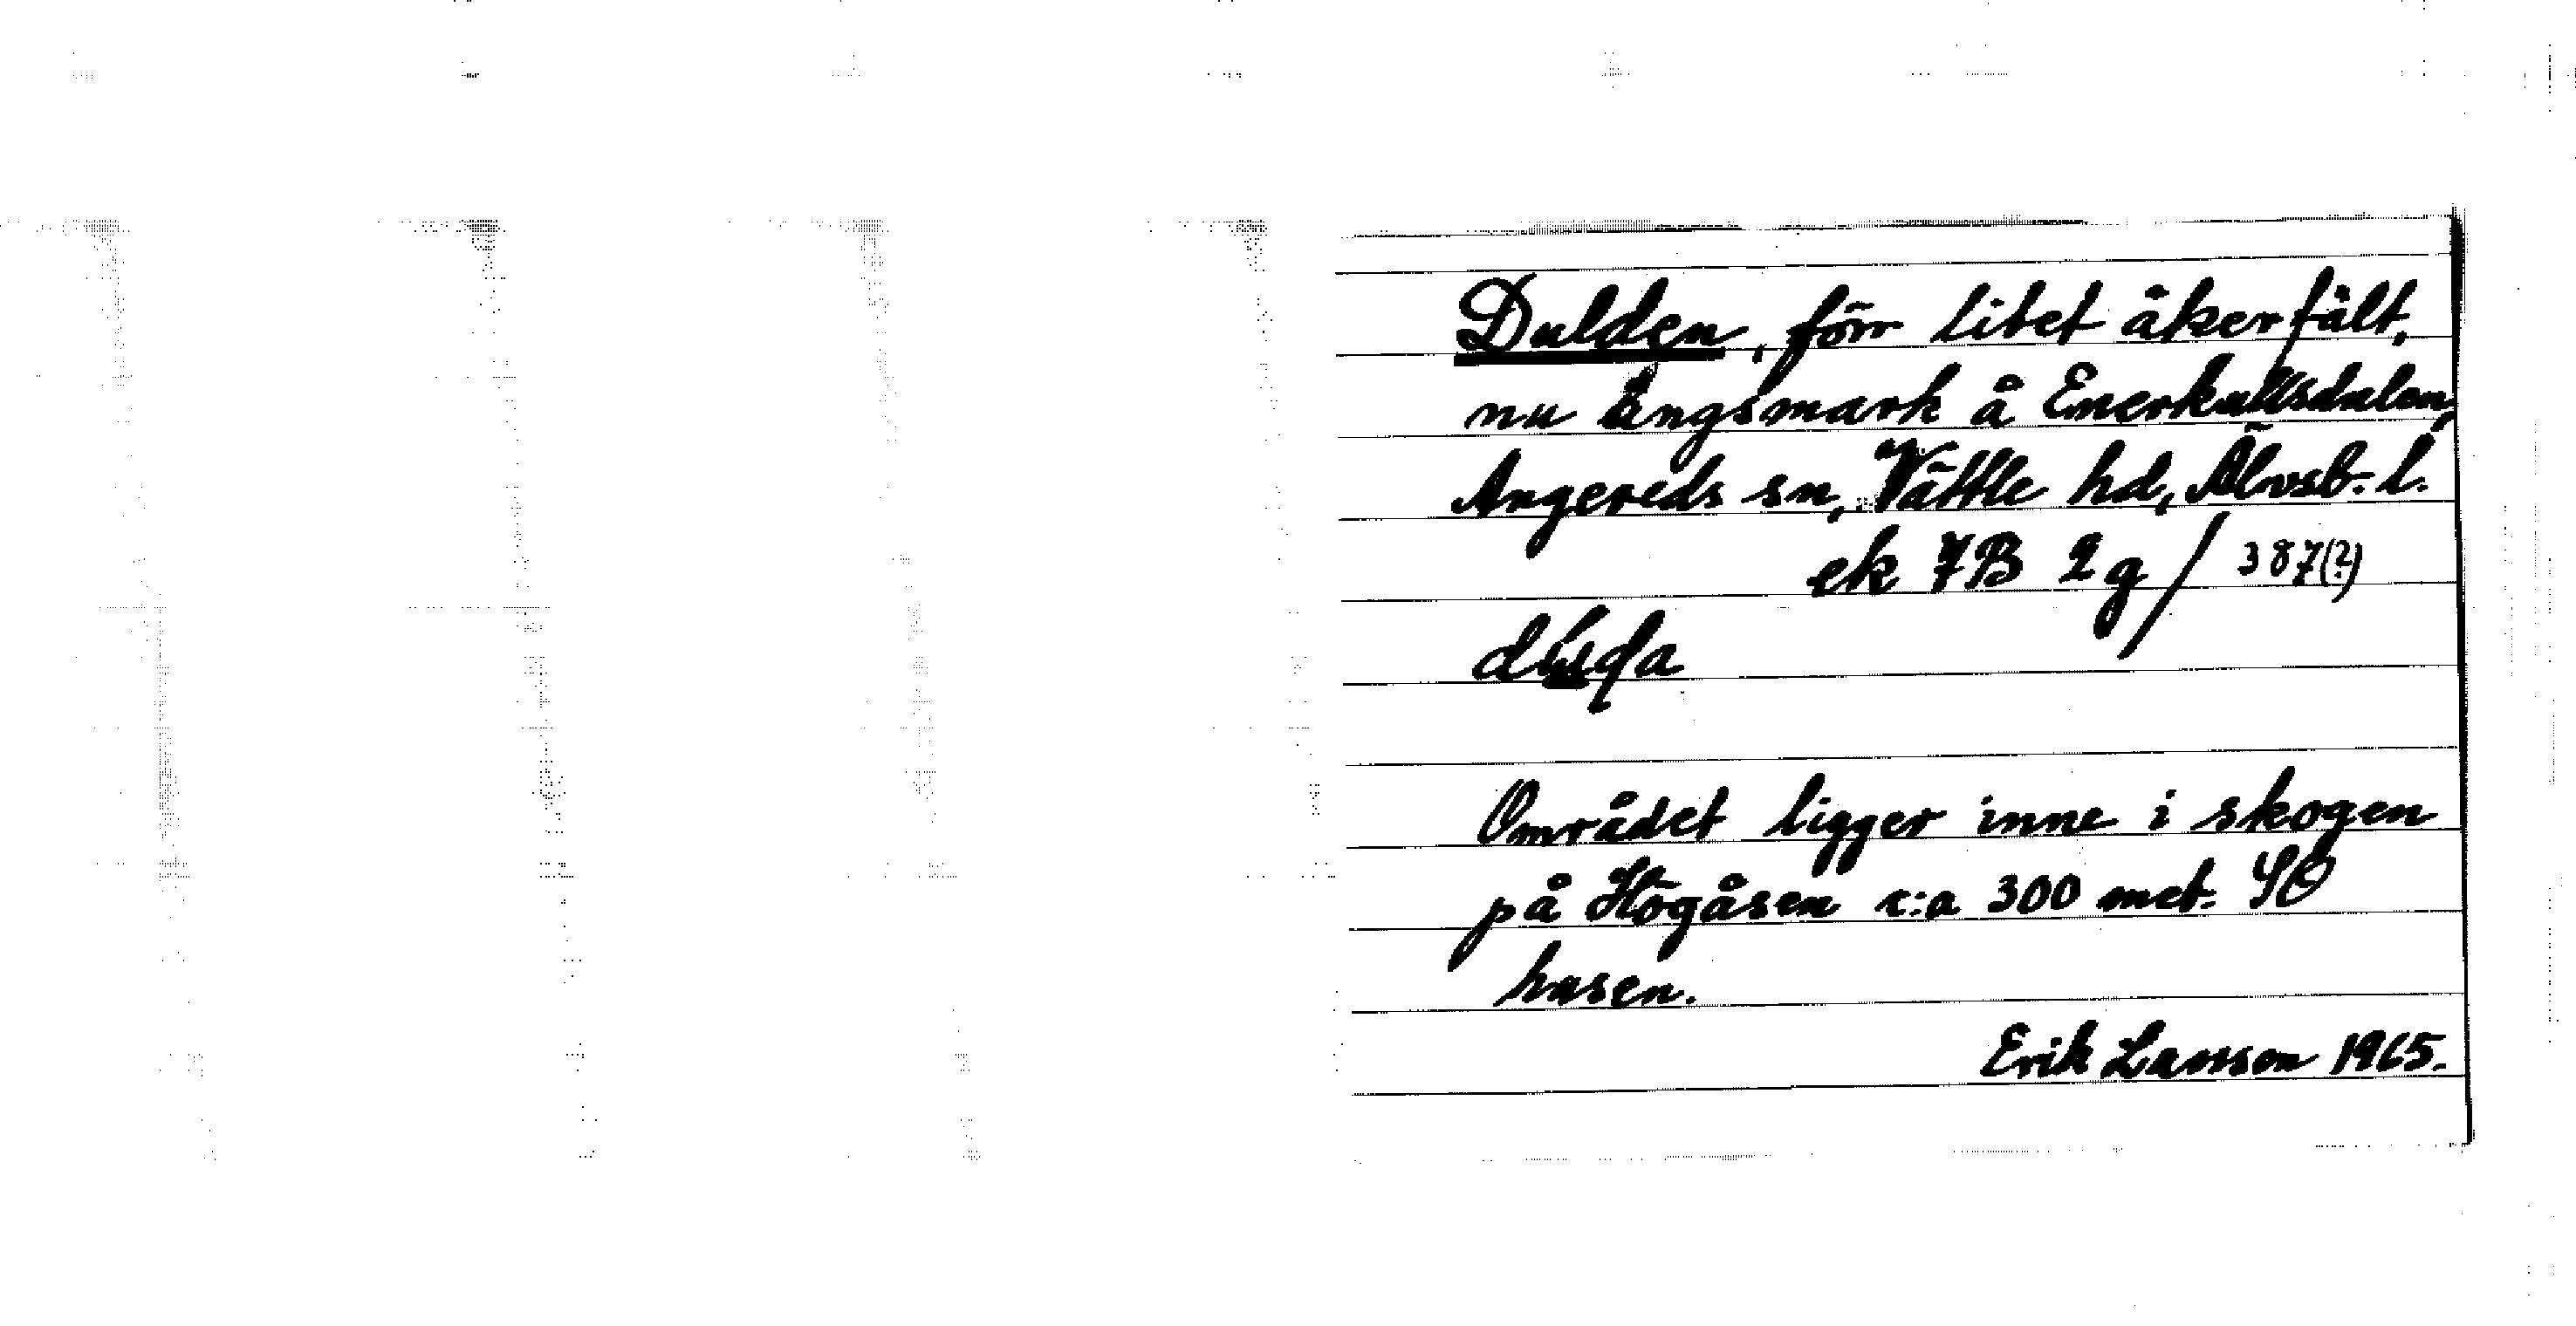 Dulden, förr litet åkerfält,
nu ängsmark å Emerkullsdalen,
Angereds sn, Vättle hd, Älvsb. l.
ek 7B 2g / 387(?)
Området ligger inne i skogen
på Högåsen c:a 300 met. SO
husen.
Erik Larsson 1965.